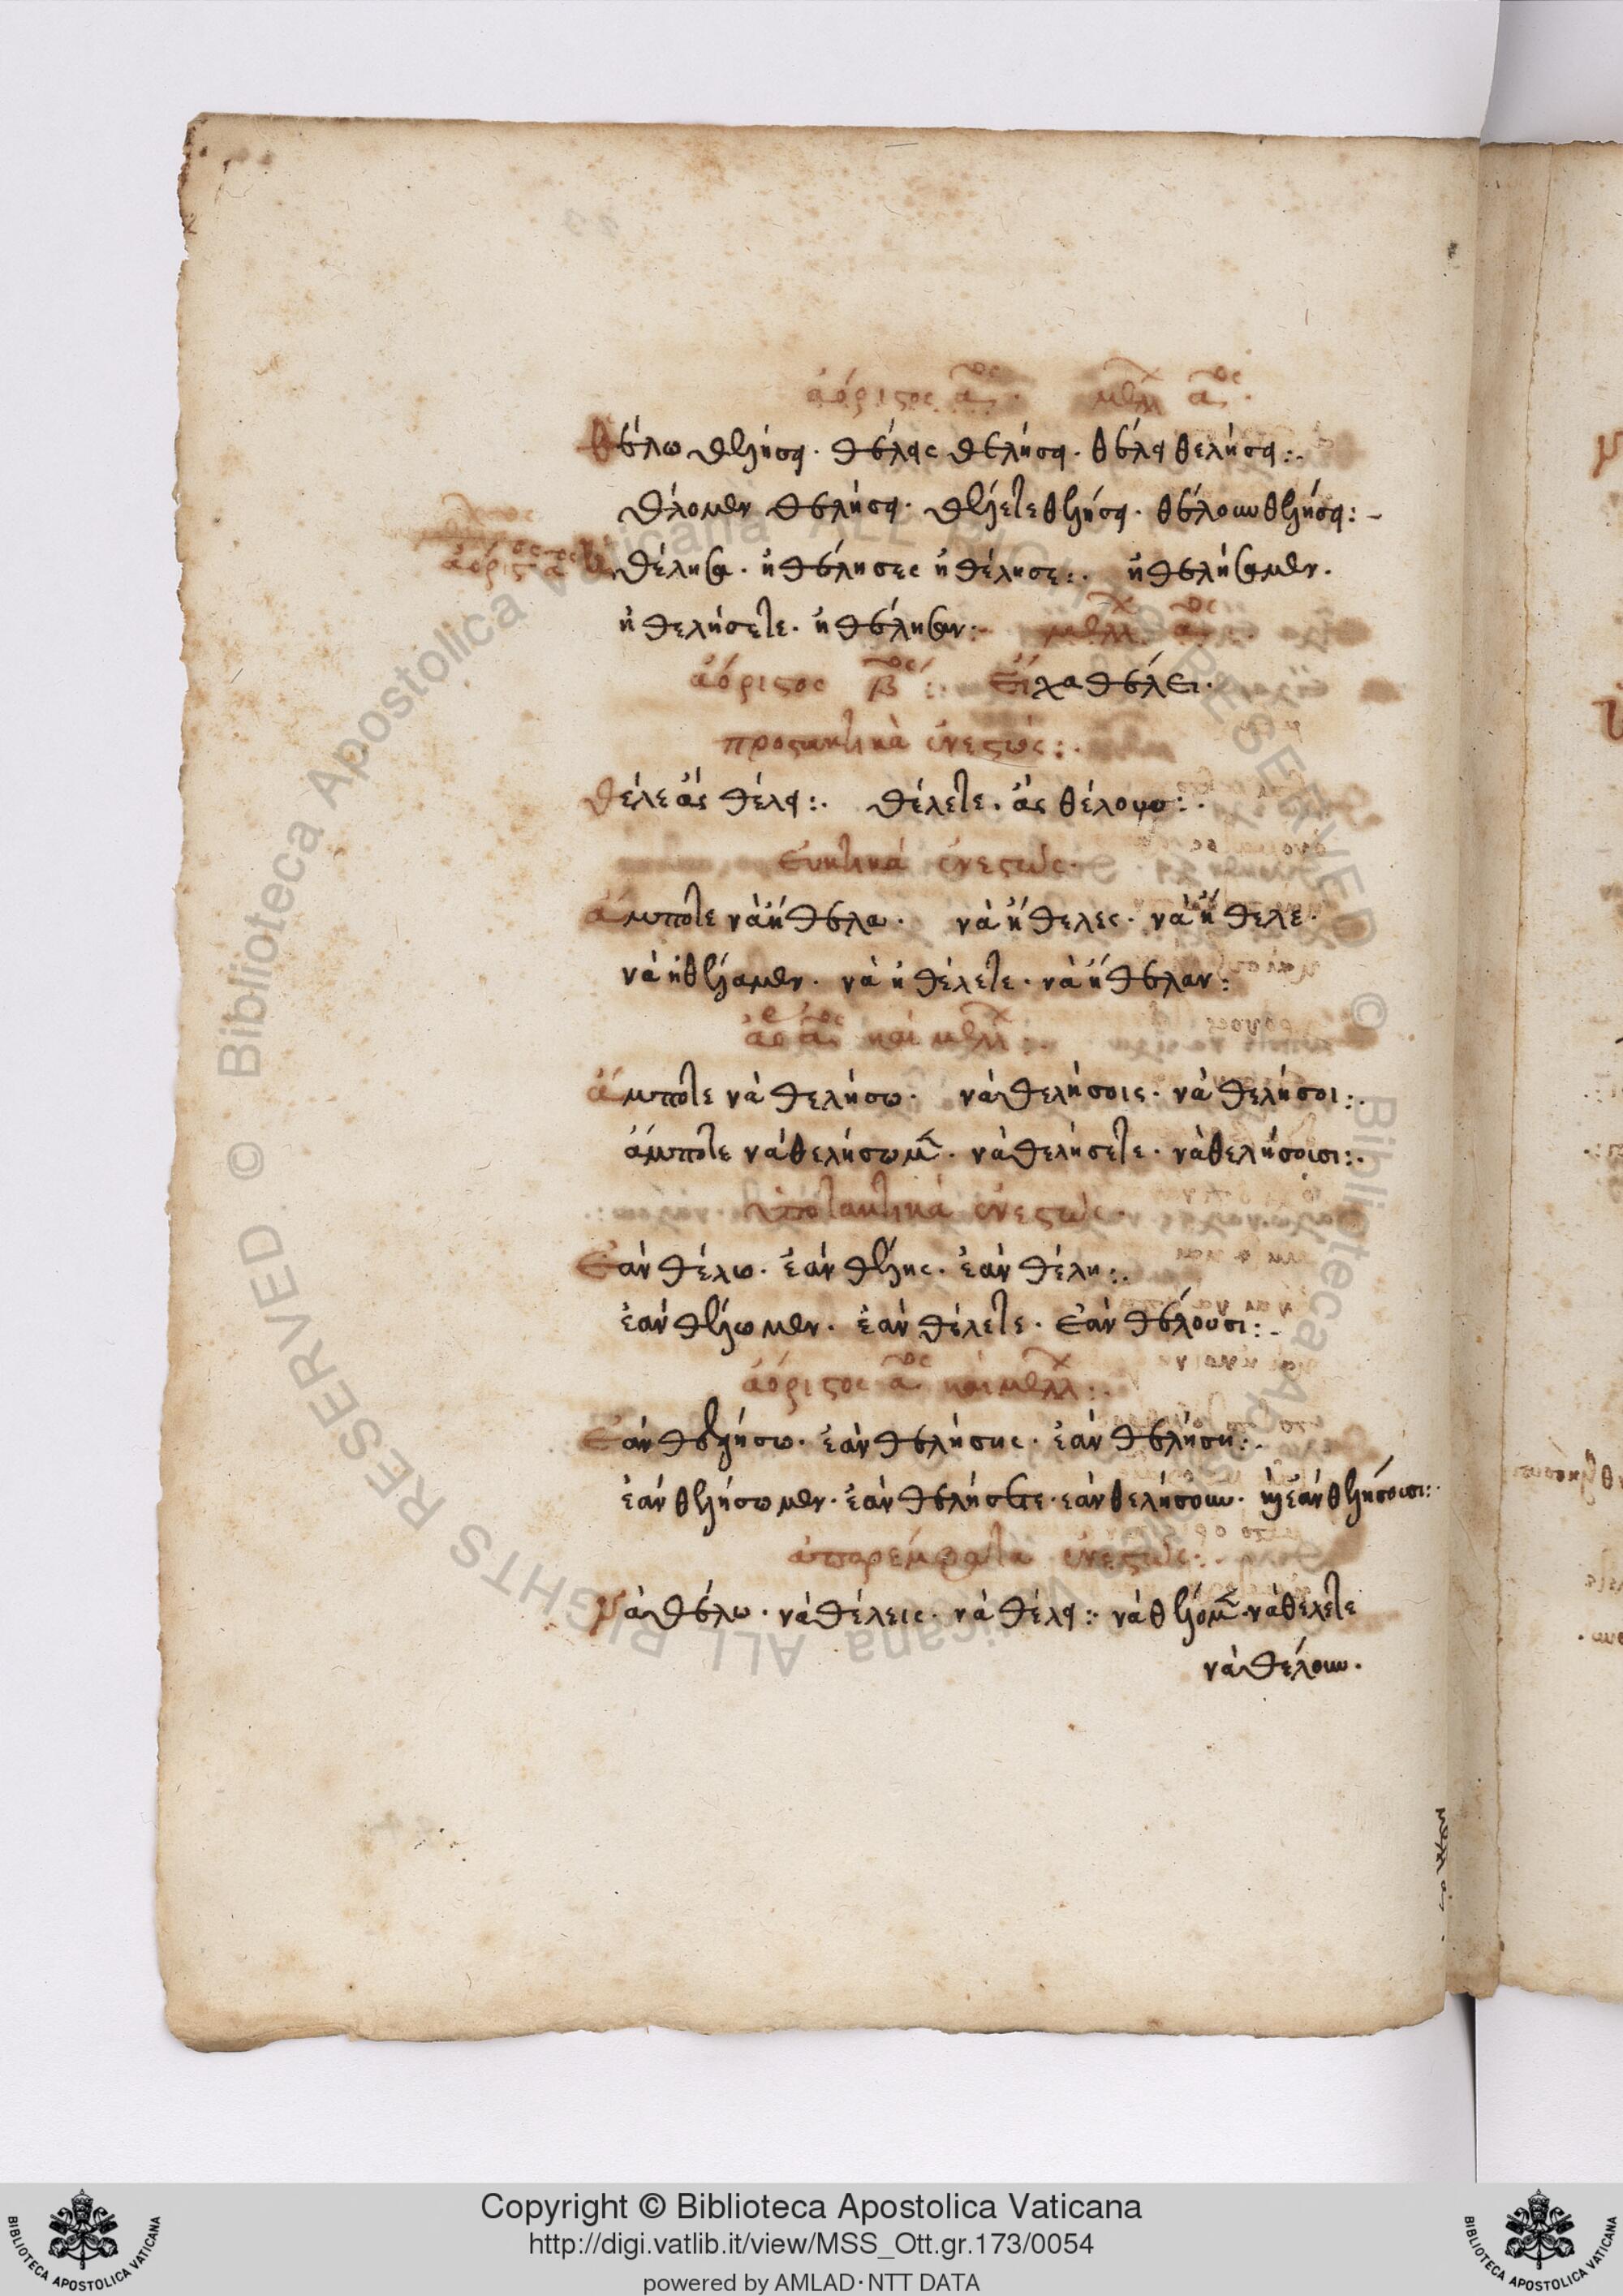 ἀόριστος αος · μελλ αος ·
θέλω θελήσῃ · θέλῃς θελήσῃ · θέλῃ θελήσῃ :.
θέλομεν θελήσῃ · θέλετε θελήσῃ · θέλουν θελήσῃ :-
ἀόριστος αος ἠθέλησα · ἠθέλησες ἠθέλησε :. ἠθελήσαμεν .
ἠθελήσετε · ἠθέλησαν :- μελλ αος
ἀόριστος βος :. Εἶχα θέλει ·
προστακτικὰ ἐνεστώς :.
θέλε ἂς θέλῃ :. θέλετε · ἂς θέλουν :.
Εὐκτικὰ ἐνεστώς ·
ἄμποτε νὰ ἤθελα · νὰ ἤθελες · νὰ ἤθελε ·
νὰ ἠθέλαμεν · νὰ ἠθέλετε · νὰ ἤθελαν :
ἀό αος καὶ μελλ :.
ἄμποτε νὰ θελήσω · νὰ θελήσοις · νὰ θελήσοι :.
ἄμποτε νὰ θελήσωμ · νὰ θελήσετε · νὰ θελήσοισι :.
ὑποτακτικὰ ἐνεστώς ·
Ἐὰν θέλω · ἐὰν θέλης · ἐὰν θέλη :.
ἐὰν θέλωμεν · ἐὰν θέλετε · ἐὰν θέλουσι :-
ἀόριστος αος καὶ μελλ :.
Ἐὰν θελήσω · ἐὰν θελήσης · ἐὰν θελήση :.
ἐὰν θελήσωμεν · ἐὰν θελήσετε · ἐὰν θελήσουν · ἢ ἐὰν θελήσοισι :.
ἀπαρέμφατα ἐνεστώς :.
Νὰ θέλω · νὰ θέλεις · νὰ θέλῃ :· νὰ θέλομ · νὰ θέλετε
νὰ θέλουν .
Copyright © Biblioteca Apostolica Vaticana
http://digi.vatlib.it/view/MSS_Ott.gr.173/0054
powered by AMLAD·NTT DATA
BIBLIOTECA APOSTOLICA VATICANA
BIBLIOTECA APOSTOLICA VATICANA
© Biblioteca Apostolica Vaticana ALL RIGHTS RESERVED
© Biblioteca Apostolica Vaticana ALL RIGHTS RESERVED